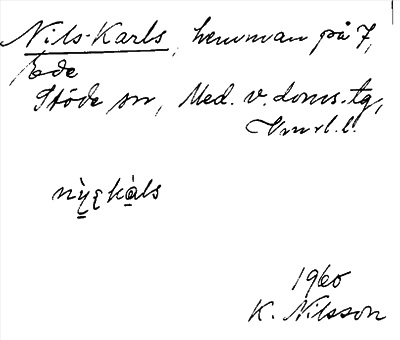 Nils-Karls, hemman på 7,
Ede
Stöde sn, Med. v. doms.tg,
Vnrl.l.
1960
K. Nilsson